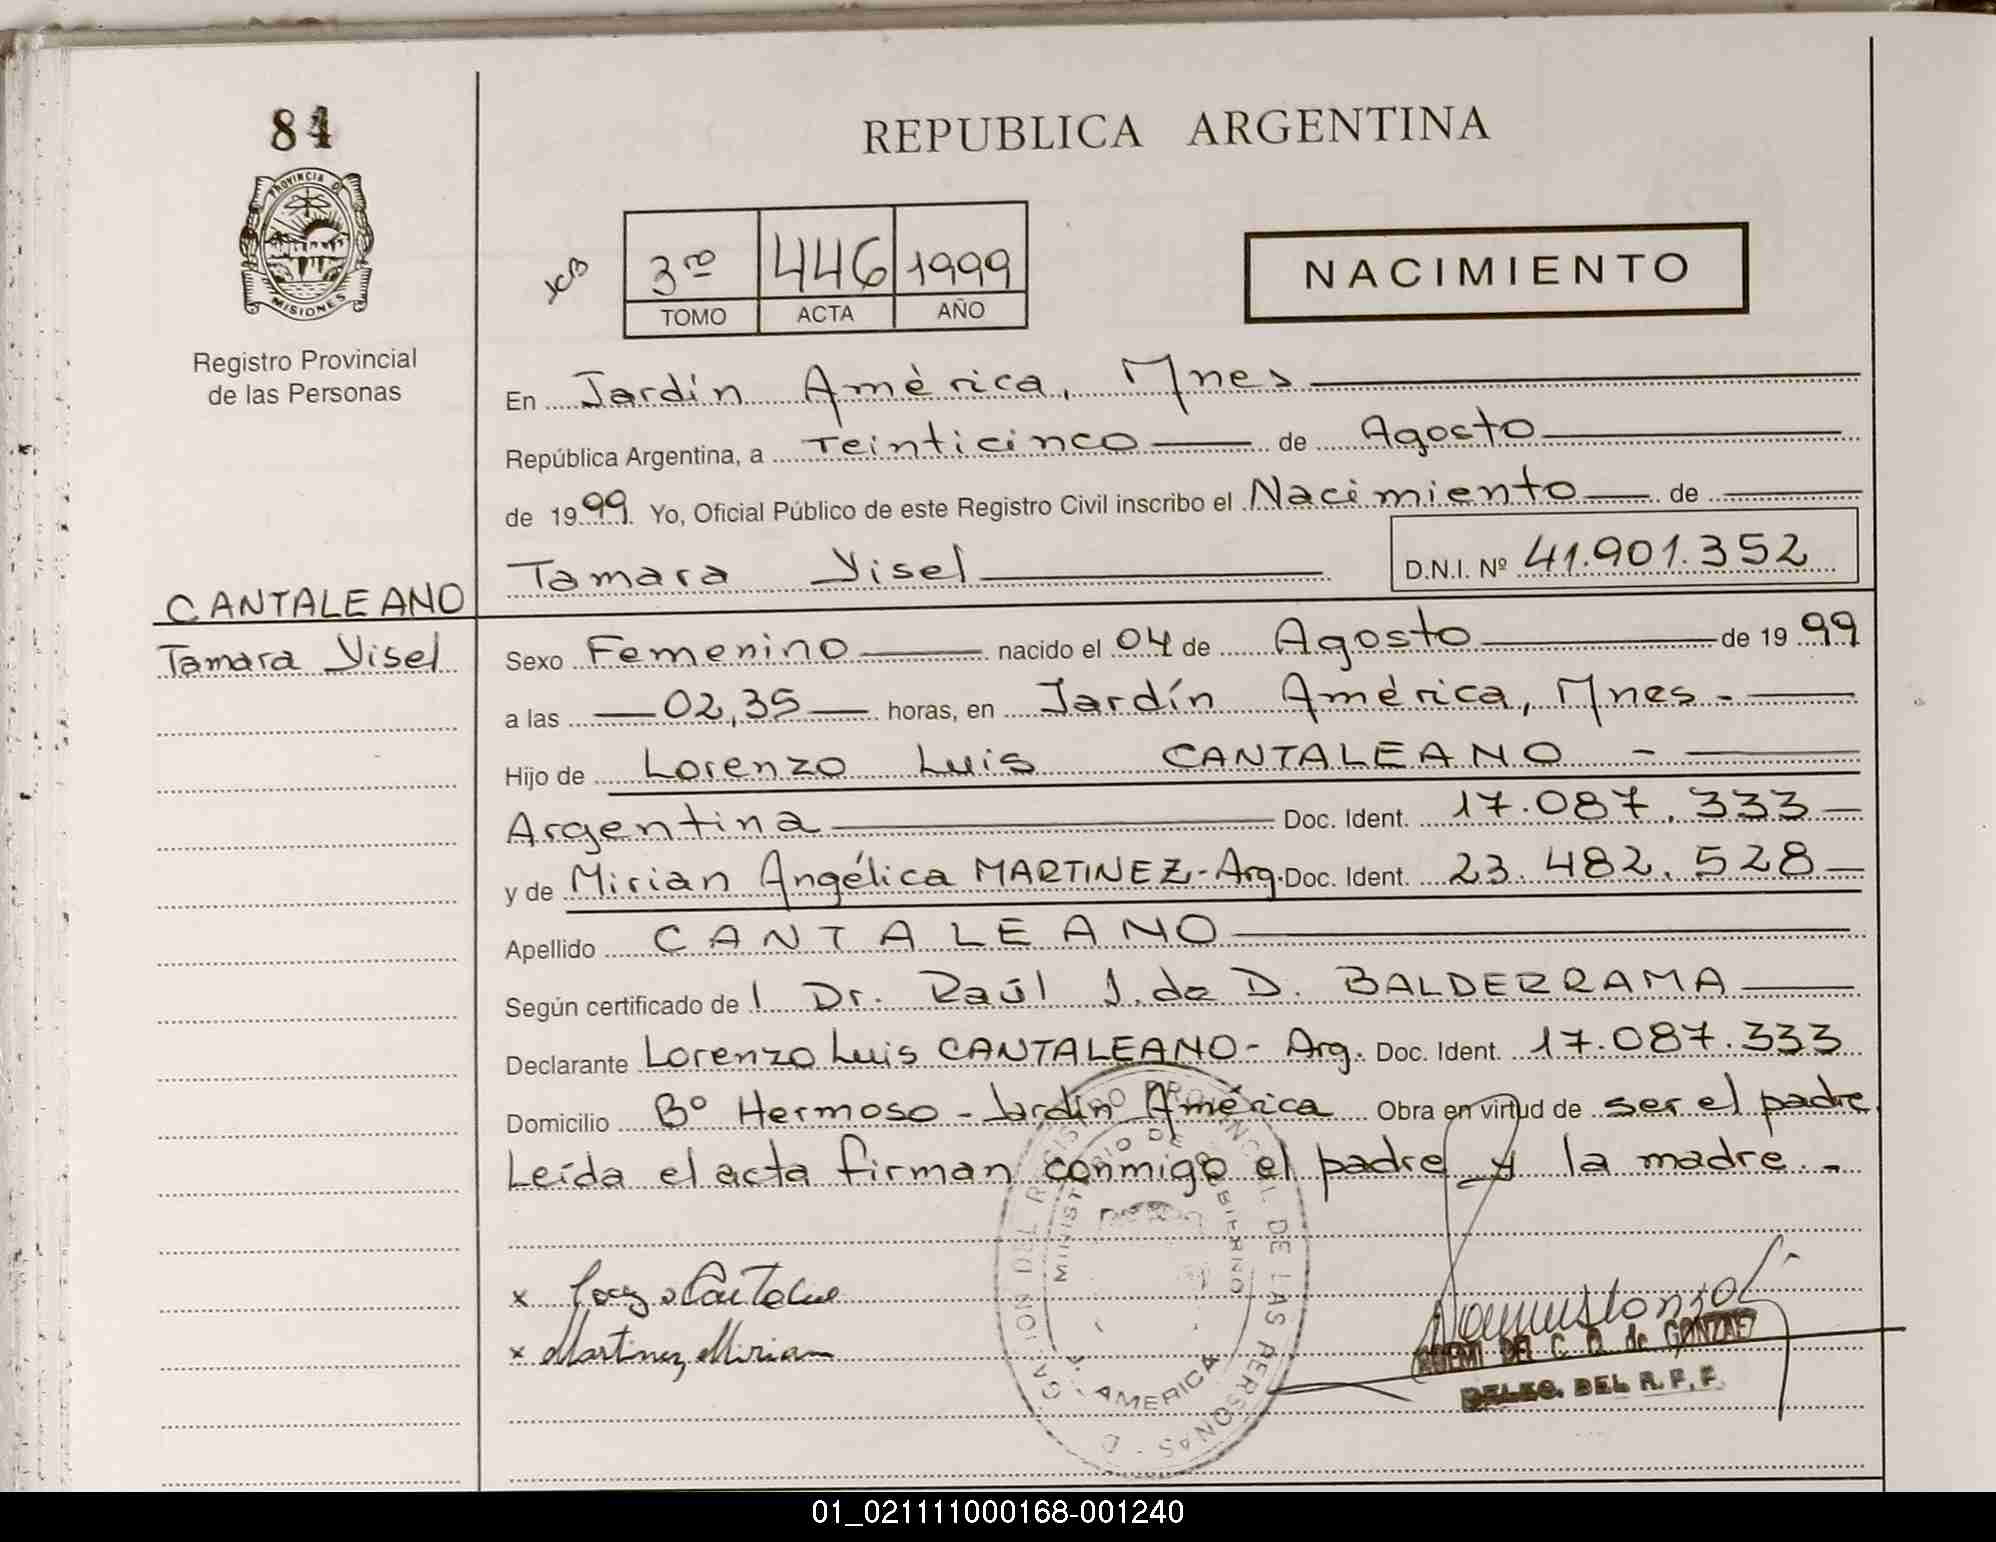 84
PROVINCIA DE
MISIONES
Registro Provincial
de las Personas
CANTALEANO
Tamara Yisel
REPUBLICA ARGENTINA
3ro 446 1999
TOMO ACTA AÑO
NACIMIENTO
En Jardín América, Mnes
República Argentina, a Veinticinco de Agosto
de 1999 Yo, Oficial Público de este Registro Civil inscribo el Nacimiento de
Tamara Yisel D.N.I. Nº 41.901.352
Sexo Femenino nacido el 04 de Agosto de 1999
a las 02,35 horas, en Jardín América, Mnes-
Hijo de Lorenzo Luis CANTALEANO -
Argentina Doc. Ident. 17.087.333
y de Mirian Angélica MARTINEZ-Arg. Doc. Ident. 23.482.528
Apellido CANTALEANO
Según certificado de l Dr. Raúl J. de D. BALDERRAMA
Declarante Lorenzo Luis CANTALEANO- Arg. Doc. Ident. 17.087.333
Domicilio Bº Hermoso - Jardín América Obra en virtud de ser el padre.
Leída el acta firman conmigo el padre y la madre.-
x
x Martinez, Mirian
DEL C. D. de GONZALEZ
DELEG. DEL R.P.P.
DEL REGISTRO PROVINCIAL DE LAS PERSONAS
MINISTERIO DE GOBIERNO
AMERICA
01_021111000168-001240